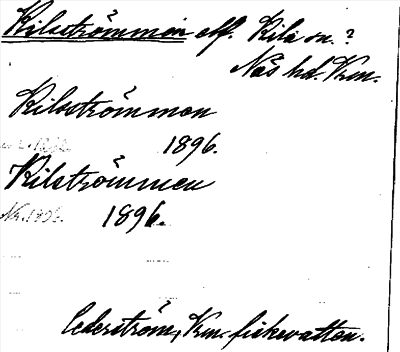 Kilströmmen eff. Kila sn.?
Näs hd. Vrm.
Kilströmmen
1896.
Kilströmmen
1896.
Cederström, Vrm. fiskevatten.